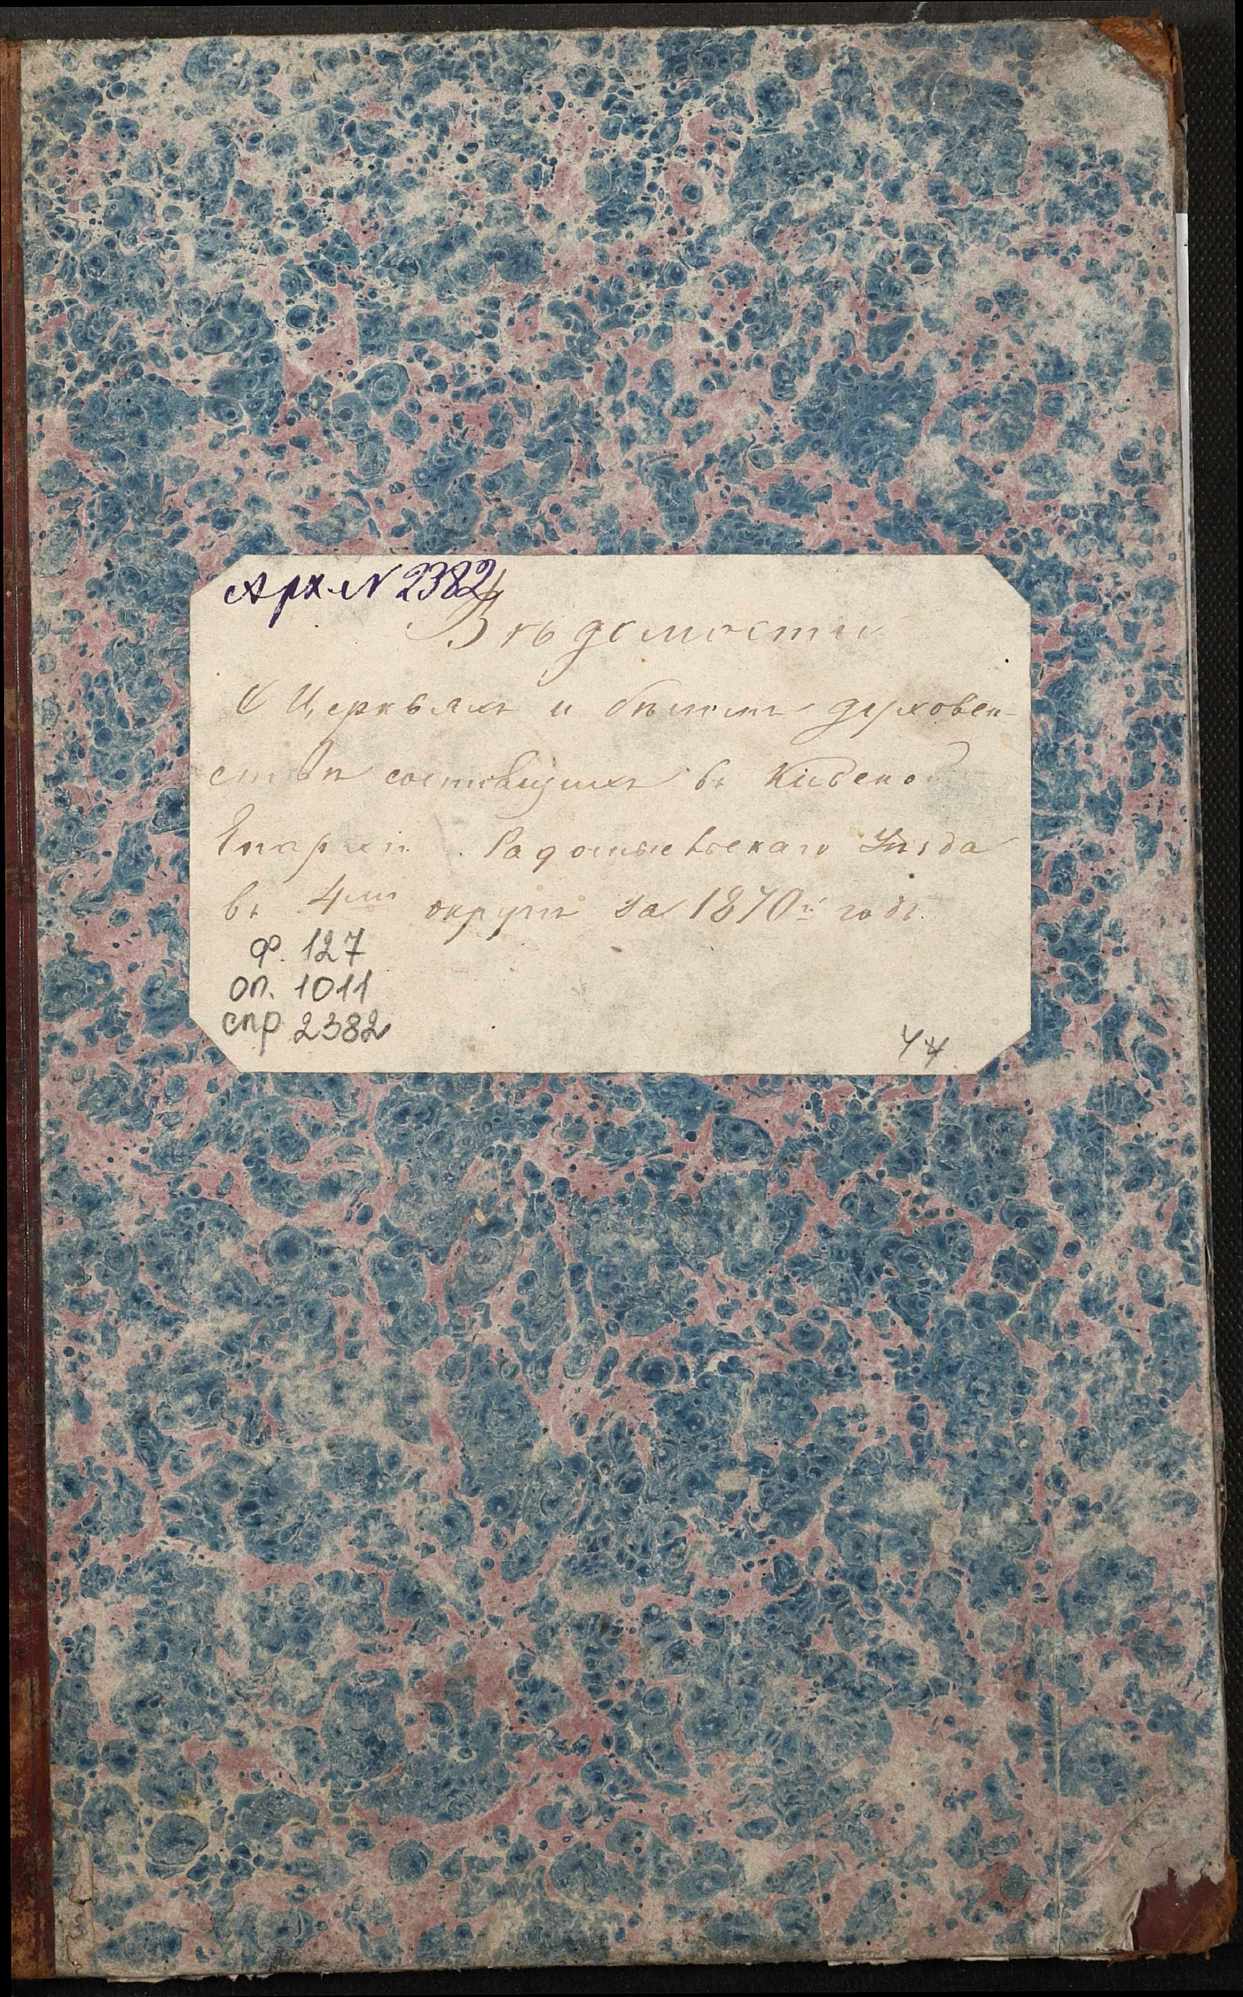 Арх. N 2382
Вѣдомости
О Церквяхъ и бѣломъ духовен-
ствѣ состоящихъ въ Кіевской
Епархіи Радомысльскаго Уѣзда
въ 4мъ округѣ за 1870й годъ.
ф. 127
оп. 1011
спр 2382